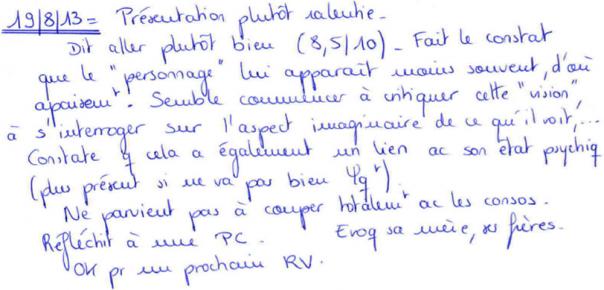 19/8/13 = Présentation plutôt ralentie -
Dit aller plutôt bien (8,5/10) - Fait le constat
que le "personnage" lui apparait moins souvent, d'où
apaisemt. Semble commencer à critiquer cette "vision",
à s'interroger sur l'aspect imaginaire de ce qu'il voit,...
Constate q cela a également un lien ac son état psychiq
(plus présent si ne va pas bien ψqt).
Ne parvient pas à couper totalemt ac les consos.
Réfléchit à une PC. Evoq sa mère, ses frères.
OK pr un prochain RV.